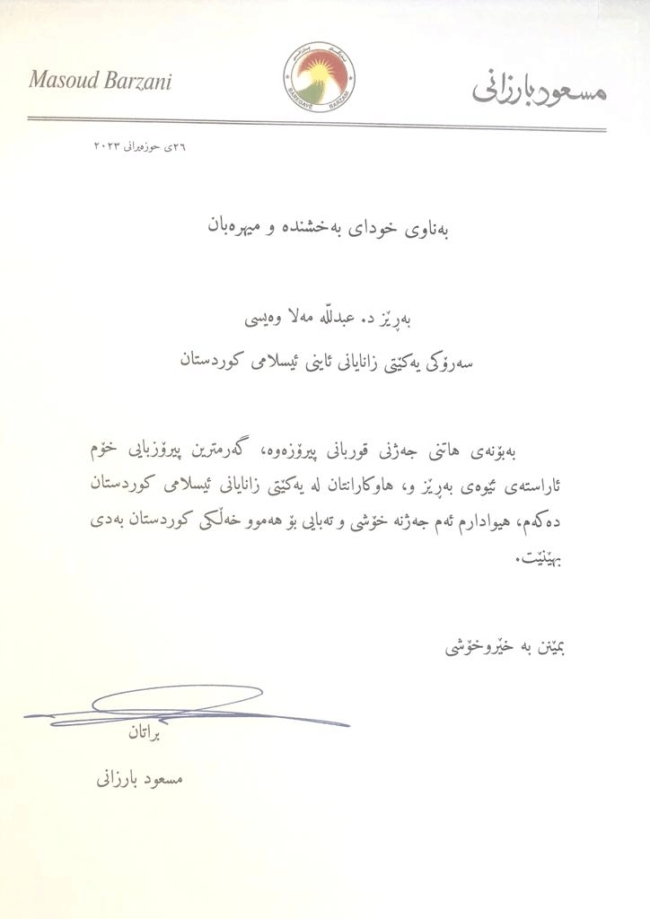 Masoud Barzani
مسعود بارزانی
BAREGAYÊ BARZANI
٢٦ی حوزەیرانی ٢٠٢٣
بەناوی خودای بەخشندە و میهرەبان
بەڕێز د. عبدللّە مەلا وەیسی
سەرۆکی یەکێتی زانایانی ئاینی ئیسلامی کوردستان
بەبۆنەی هاتنی جەژنی قوربانی پیرۆزەوە، گەرمترین پیرۆزبایی خۆم
ئاراستەی ئێوەی بەڕێز و، هاوکارانتان لە یەکێتی زانایانی ئیسلامی کوردستان
دەکەم، هیوادارم ئەم جەژنە خۆشی و تەبایی بۆ هەموو خەڵکی کوردستان بەدی
بهێنێت.
بمێنن بە خێروخۆشی
براتان
مسعود بارزانی